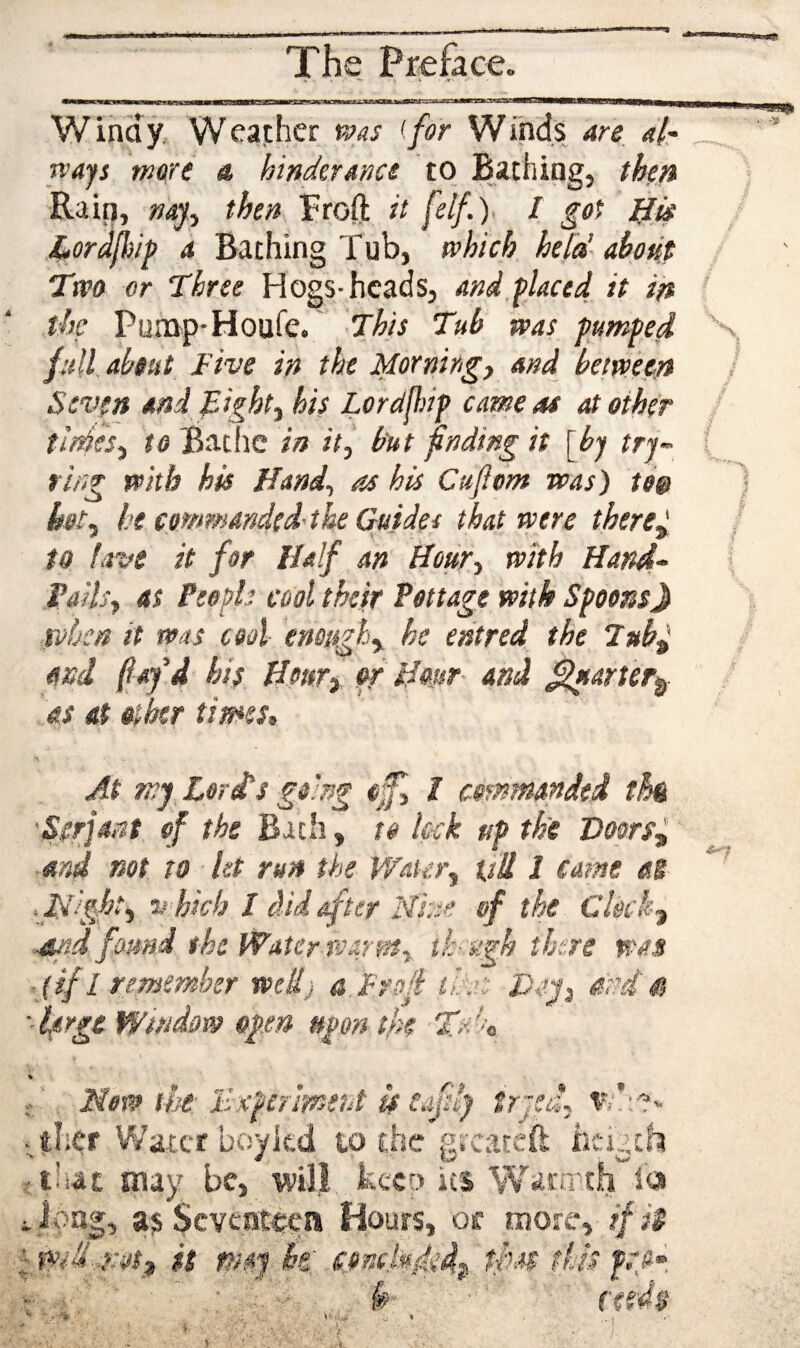 The Preface.
Windy Weather was (for Winds are al-
ways more a hinderance to Bathing, then
Rain, nay, then Frost it self.) I got His
Lordship a Bathing Tub, which held about
Two or Three Hogs-heads, and placed it in
the Pump-House. This Tub was pumped
full about Five in the Morning, and between
Seven and Eight, his Lordship came as at other
times, to Bathe in it, but finding it [by try-
ring with his Hand, as his Custom was) too
hot, he commanded the Guides that were there,
to lave it for Half an Hour, with Hand-
Pails, as People cool their Pottage with Spoons)
when it was cool enough, he entred the Tub,
and stay'd his Hour, or Hour and Quarter,
as at other times.
At my Lord's going off, I commanded the
Serjant of the Bath, to lock up the Doors,
and not to let run the Water, till I came at
Night, which I did after Nine of the Clock,
and found the Water warm, though there was
(if I remember well) a Frost that Day, and a
large Window open upon the Tub.
Now the Experiment is easily tryed, whe-
ther Water boyled to the greatest heigth
that may be, will keep its Warmth so
long, as Seventeen Hours, or more, if it
will not, it may be concluded, that this pro-
b ceeds